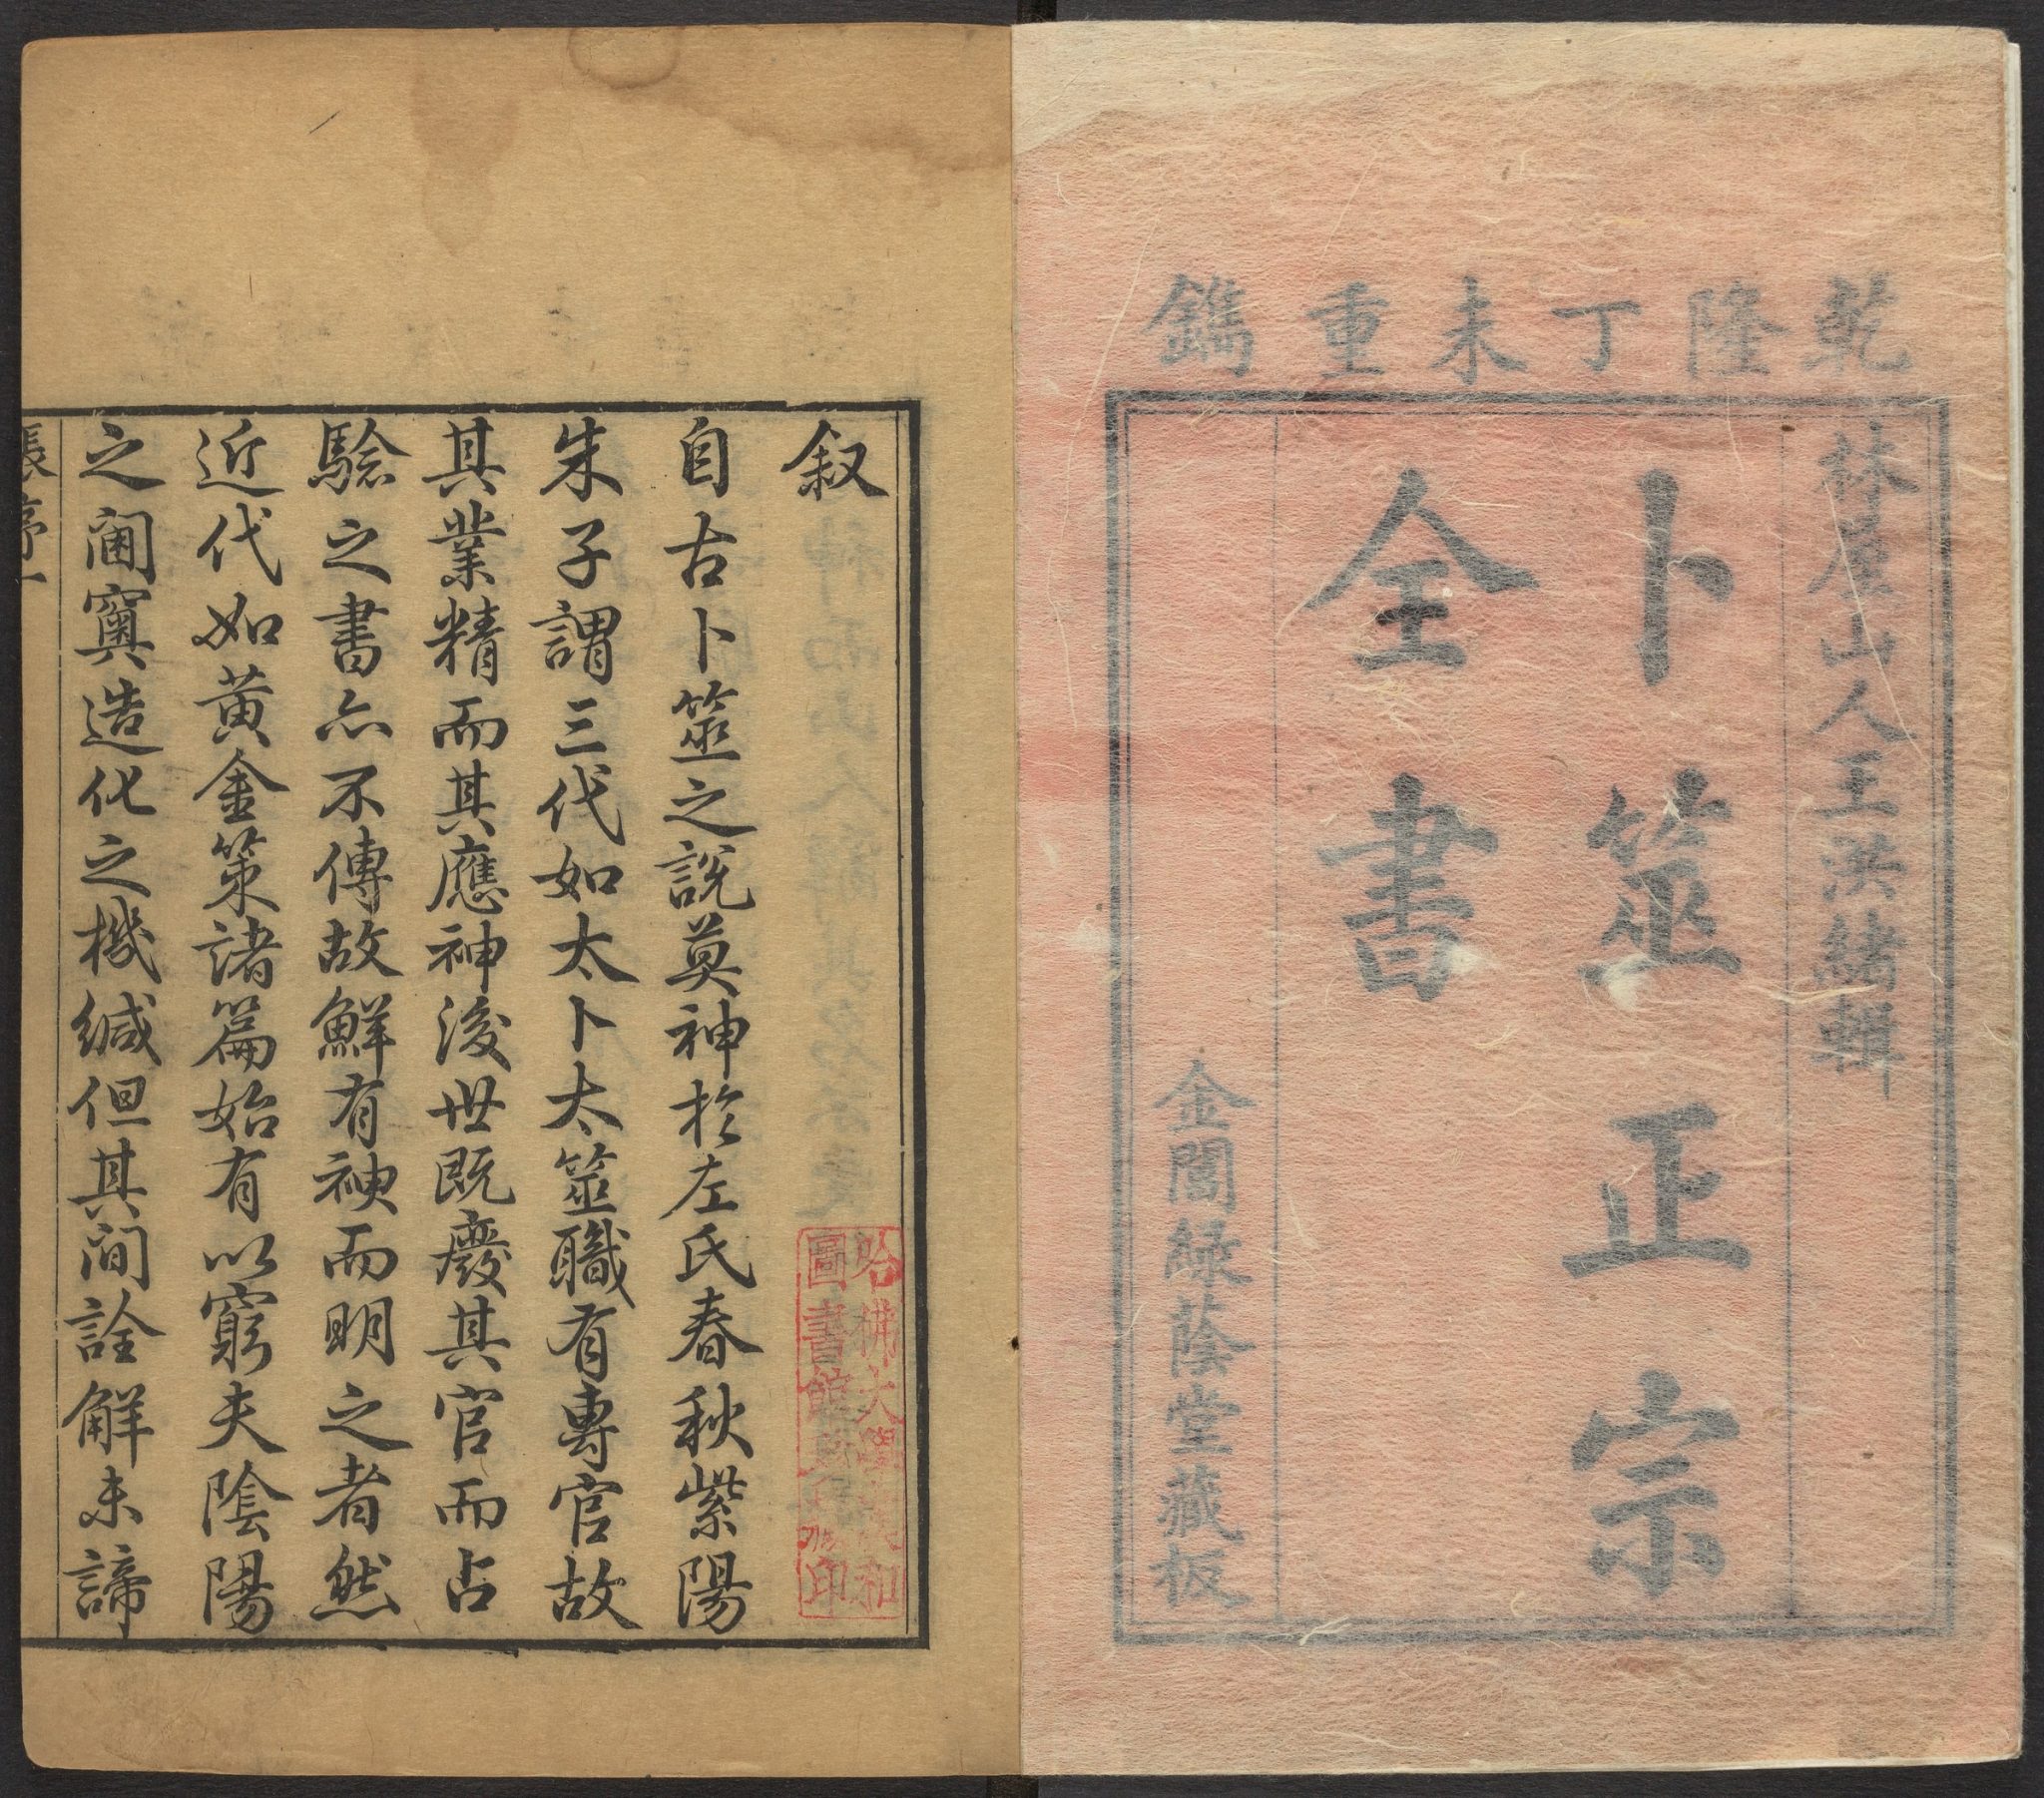 乾隆丁未重鐫
林屋山人王洪緒輯
卜筮正宗
全書
金閶綠蔭堂藏板
叙
自古卜筮之說莫神於左氏春秋紫陽
朱子謂三代如太卜太筮職有專官故
其業精而其應神後世既廢其官而占
驗之書亦不傳故鮮有神而明之者然
近代如黃金策諸篇始有以窮夫陰陽
之閫奧造化之機緘但其間詮解未諦
張序一
哈佛大學漢和
圖書館珍藏印